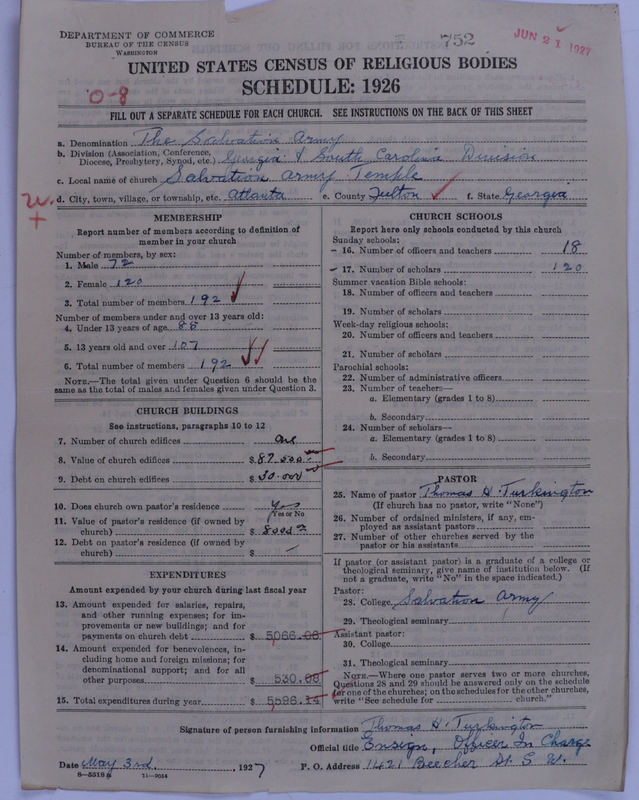 DEPARTMENT OF COMMERCE
BUREAU OF THE CENSUS
WASHINGTON
752
JUN 21 1927
UNITED STATES CENSUS OF RELIGIOUS BODIES
SCHEDULE: 1926
0-8
FILL OUT A SEPARATE SCHEDULE FOR EACH CHURCH. SEE INSTRUCTIONS ON THE BACK OF THIS SHEET
a. Denomination The Salvation Army
b. Division (Association, Conference, Diocese, Presbytery, Synod, etc.) Georgia & South Carolina Division
c. Local name of church Salvation Army Temple
d. City, town, village, or township, etc. Atlanta e. County Fulton f. State Georgia
MEMBERSHIP
Report number of members according to definition of
member in your church
Number of members, by sex:
1. Male 72
2. Female 120
3. Total number of members 192
Number of members under and over 13 years old:
4. Under 13 years of age 85
5. 13 years old and over 107
6. Total number of members 192
NOTE.—The total given under Question 6 should be
same as the total of males and females given under Question 3.
CHURCH BUILDINGS
See instructions, paragraphs 10 to 12
7. Number of church edifices One
8. Value of church edifices $ 87000
9. Debt on church edifices $ 30.000
10. Does church own pastor's residence Yes
Yes or No
11. Value of pastor's residence (if owned by
church) $ 8000
12. Debt on pastor's residence (if owned by
church) $ —
EXPENDITURES
Amount expended by your church during last fiscal year
13. Amount expended for salaries, repairs,
and other running expenses; for im-
provements or new buildings; and for
payments on church debt $ 5066.06
14. Amount expended for benevolences, in-
cluding home and foreign missions; for
denominational support; and for all
other purposes $ 530.08
15. Total expenditures during year $ 5596.14
CHURCH SCHOOLS
Report here only schools conducted by this church
Sunday schools:
16. Number of officers and teachers 18
17. Number of scholars 120
Summer vacation Bible schools:
18. Number of officers and teachers
19. Number of scholars
Week-day religious schools:
20. Number of officers and teachers
21. Number of scholars
Parochial schools:
22. Number of administrative officers
23. Number of teachers—
a. Elementary (grades 1 to 8)
b. Secondary
24. Number of scholars—
a. Elementary (grades 1 to 8)
b. Secondary
PASTOR
25. Name of pastor Thomas H. Turkington
(If church has no pastor, write "None")
26. Number of ordained ministers, if any, em-
ployed as assistant pastors
27. Number of other churches served by the
pastor or his assistants
If pastor (or assistant pastor) is a graduate of a college or
theological seminary, give name of institution below. (If
not a graduate, write "No" in the space indicated.)
Pastor:
28. College Salvation Army
29. Theological seminary
Assistant pastor:
30. College
31. Theological seminary
NOTE:—Where one pastor serves two or more churches,
Questions 28 and 29 should be answered only on the schedule
for one of the churches; on the schedules for the other churches,
write "See schedule for church."
Signature of person furnishing information Thomas H. Turkington
Official title Ensign, Officer In Charge
Date May 3rd, 1927 P. O. Address 1421 Beecher St. S. W.